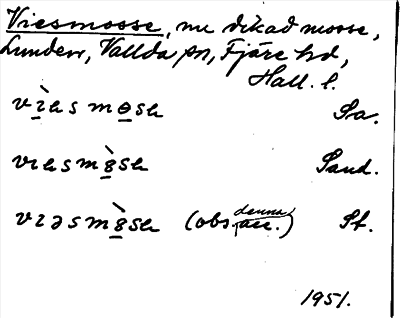 Viesmosse, nu dikad mosse,
Lunden, Vallda sn, Fjäre hd,
Hall. l.
Sa.
Sand.
(obs. denna acc.) St.
1951.